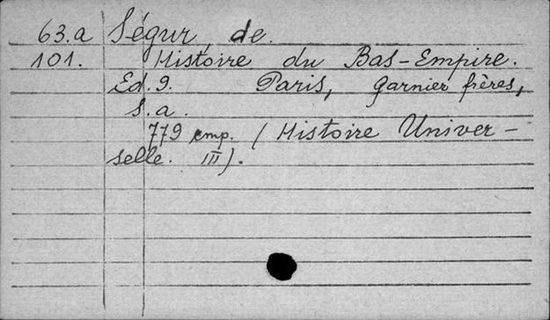 63.a Ségur, de.
101. Histoire du Bas-Empire.
Ed. 9. Paris, Garnier frères,
s.a.
779 cmp. (Histoire Univer-
selle. III).